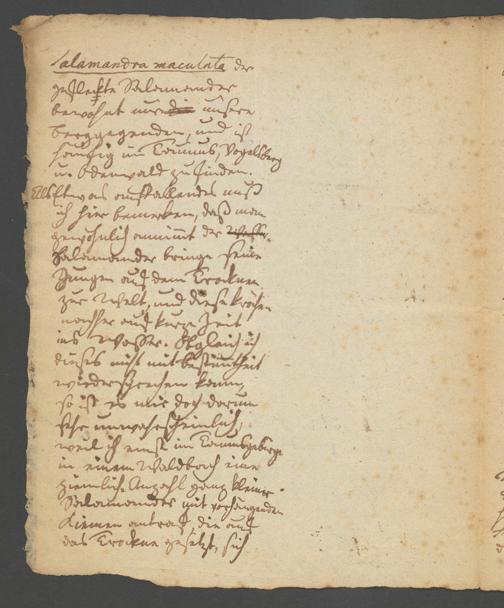 Salamandra maculata der
gefleckte Salamander
bewohnt nur unsere
berggegenden, und ist
häufig im Taunus, Vogelsberg
u. Odenwald zu finden.
Etwas auffallendes muß
ich hier bemerken, daß man
gewöhnlich annimmt der
Salamander bringe seine
Jungen auf dem Trocknen
zur Welt, und diese kröchen
nachher auf kurze Zeit
ins Wasser. Obgleich ich
dieses nicht mit bestimtheit
wiedersprechen kann,
so ist es mir doch darum
sehr unwahrscheinlich,
weil ich einst im Taunusgebirge
in einem Waldbach eine
ziemliche Anzahl ganz kleiner
Salamander mit vorhangenden
Kiemen antraf, die auf
das Trockne gesetzt, sich